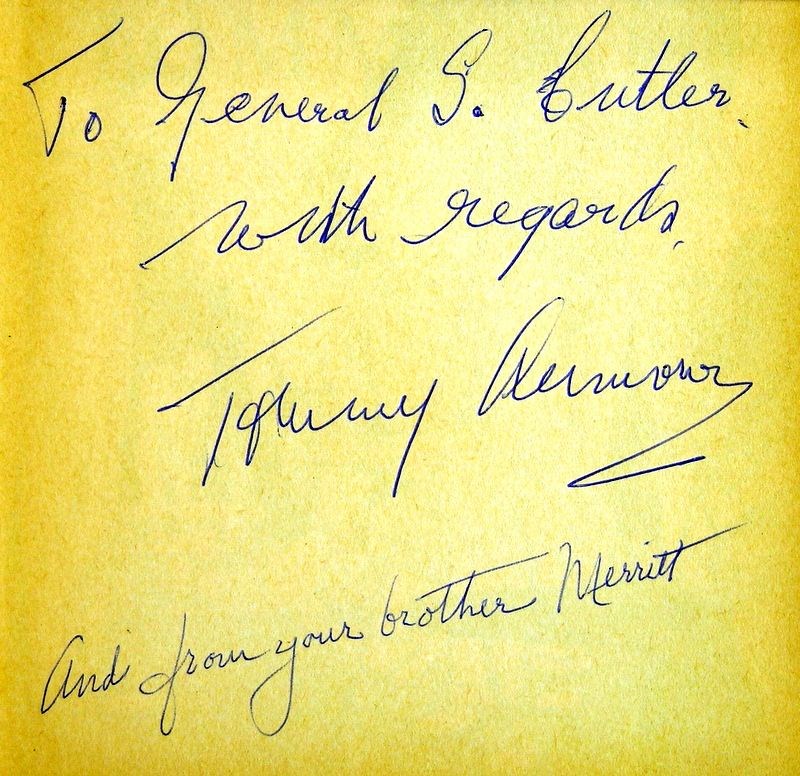 To General S. Cutler.
with regards.
Tommy Armour
And from your brother Merritt